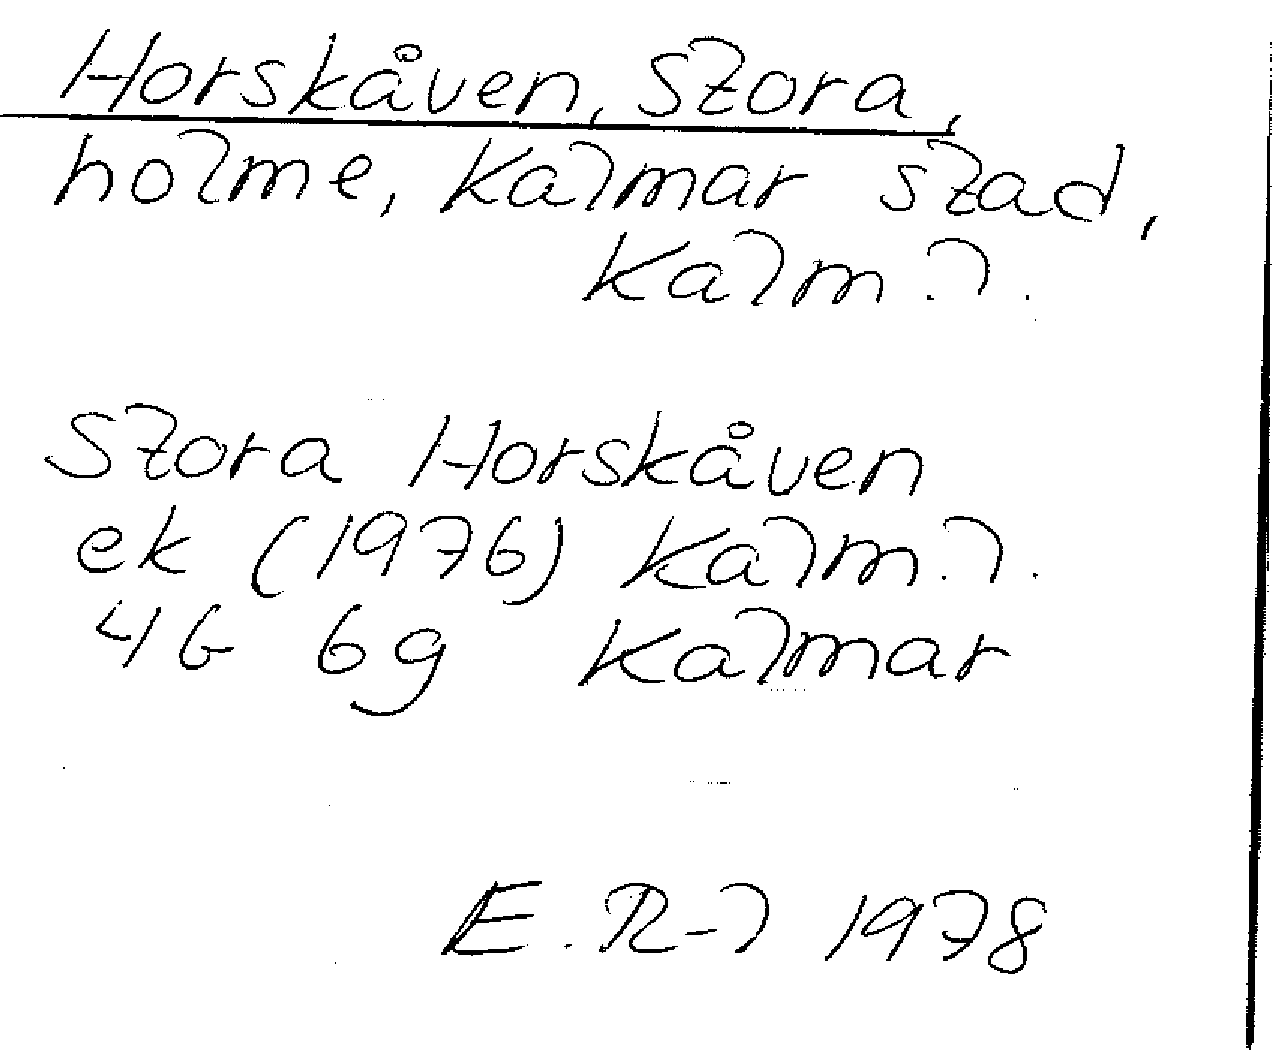 Horskåven, Stora,
holme, Kalmar stad,
Kalm. l.
Stora Horskåven
ek (1976) Kalm. l.
4G 6g Kalmar
E. R-l 1978